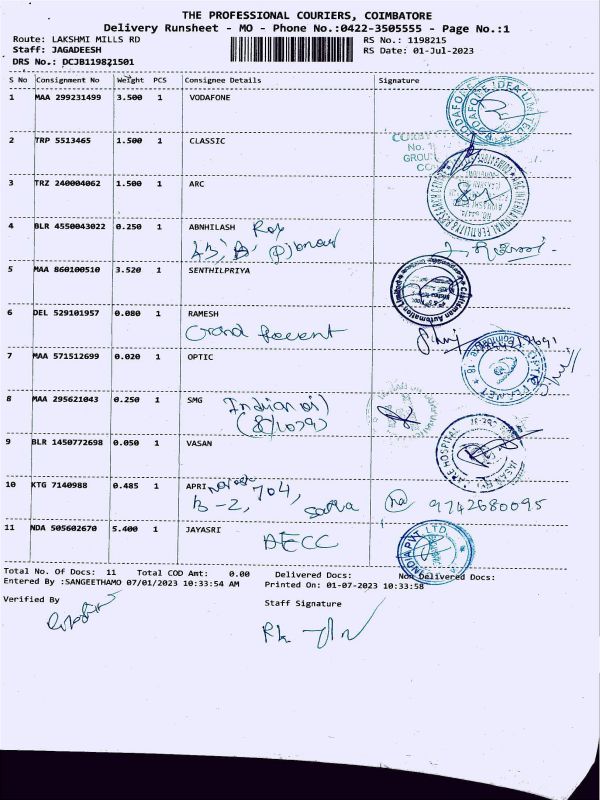 THE PROFESSIONAL COURIERS, COIMBATORE
Delivery Runsheet - MO - Phone No.:0422-3505555 - Page No.:1
Route: LAKSHMI MILLS RD RS No.: 1198215
Staff: JAGADEESH RS Date: 01-Jul-2023
DRS No.: DCJB119821501
S No Consignment No Weight PCS Consignee Details Signature
1 MAA 299231499 3.500 1 VODAFONE
VODAFONE IDEA LIMITED
2 TRP 5513465 1.500 1 CLASSIC
No. 1
GROU
3 TRZ 240004062 1.500 1 ARC
ARC INTERNATIONAL FERTILITY & RESEARCH CENTRE
4 BLR 4550043022 0.250 1 ABNHILASH
5 MAA 860100510 3.520 1 SENTHILPRIYA
Automation Limited
6 DEL 529101957 0.080 1 RAMESH
Grand
7 MAA 571512699 0.020 1 OPTIC
PLANET
8 MAA 295621043 0.250 1 SMG
Indian oil
9 BLR 1450772698 0.050 1 VASAN
VASAN EYE CARE HOSPITAL
10 KTG 7140988 0.485 1 APRI
B-2, 704, 9742680095
11 NDA 505602670 5.400 1 JAYASRI
AECC
INDIA PVT LTD
Total No. Of Docs: 11 Total COD Amt: 0.00 Delivered Docs: Non Delivered Docs:
Entered By :SANGEETHAMO 07/01/2023 10:33:54 AM Printed On: 01-07-2023 10:33:58
Verified By Staff Signature